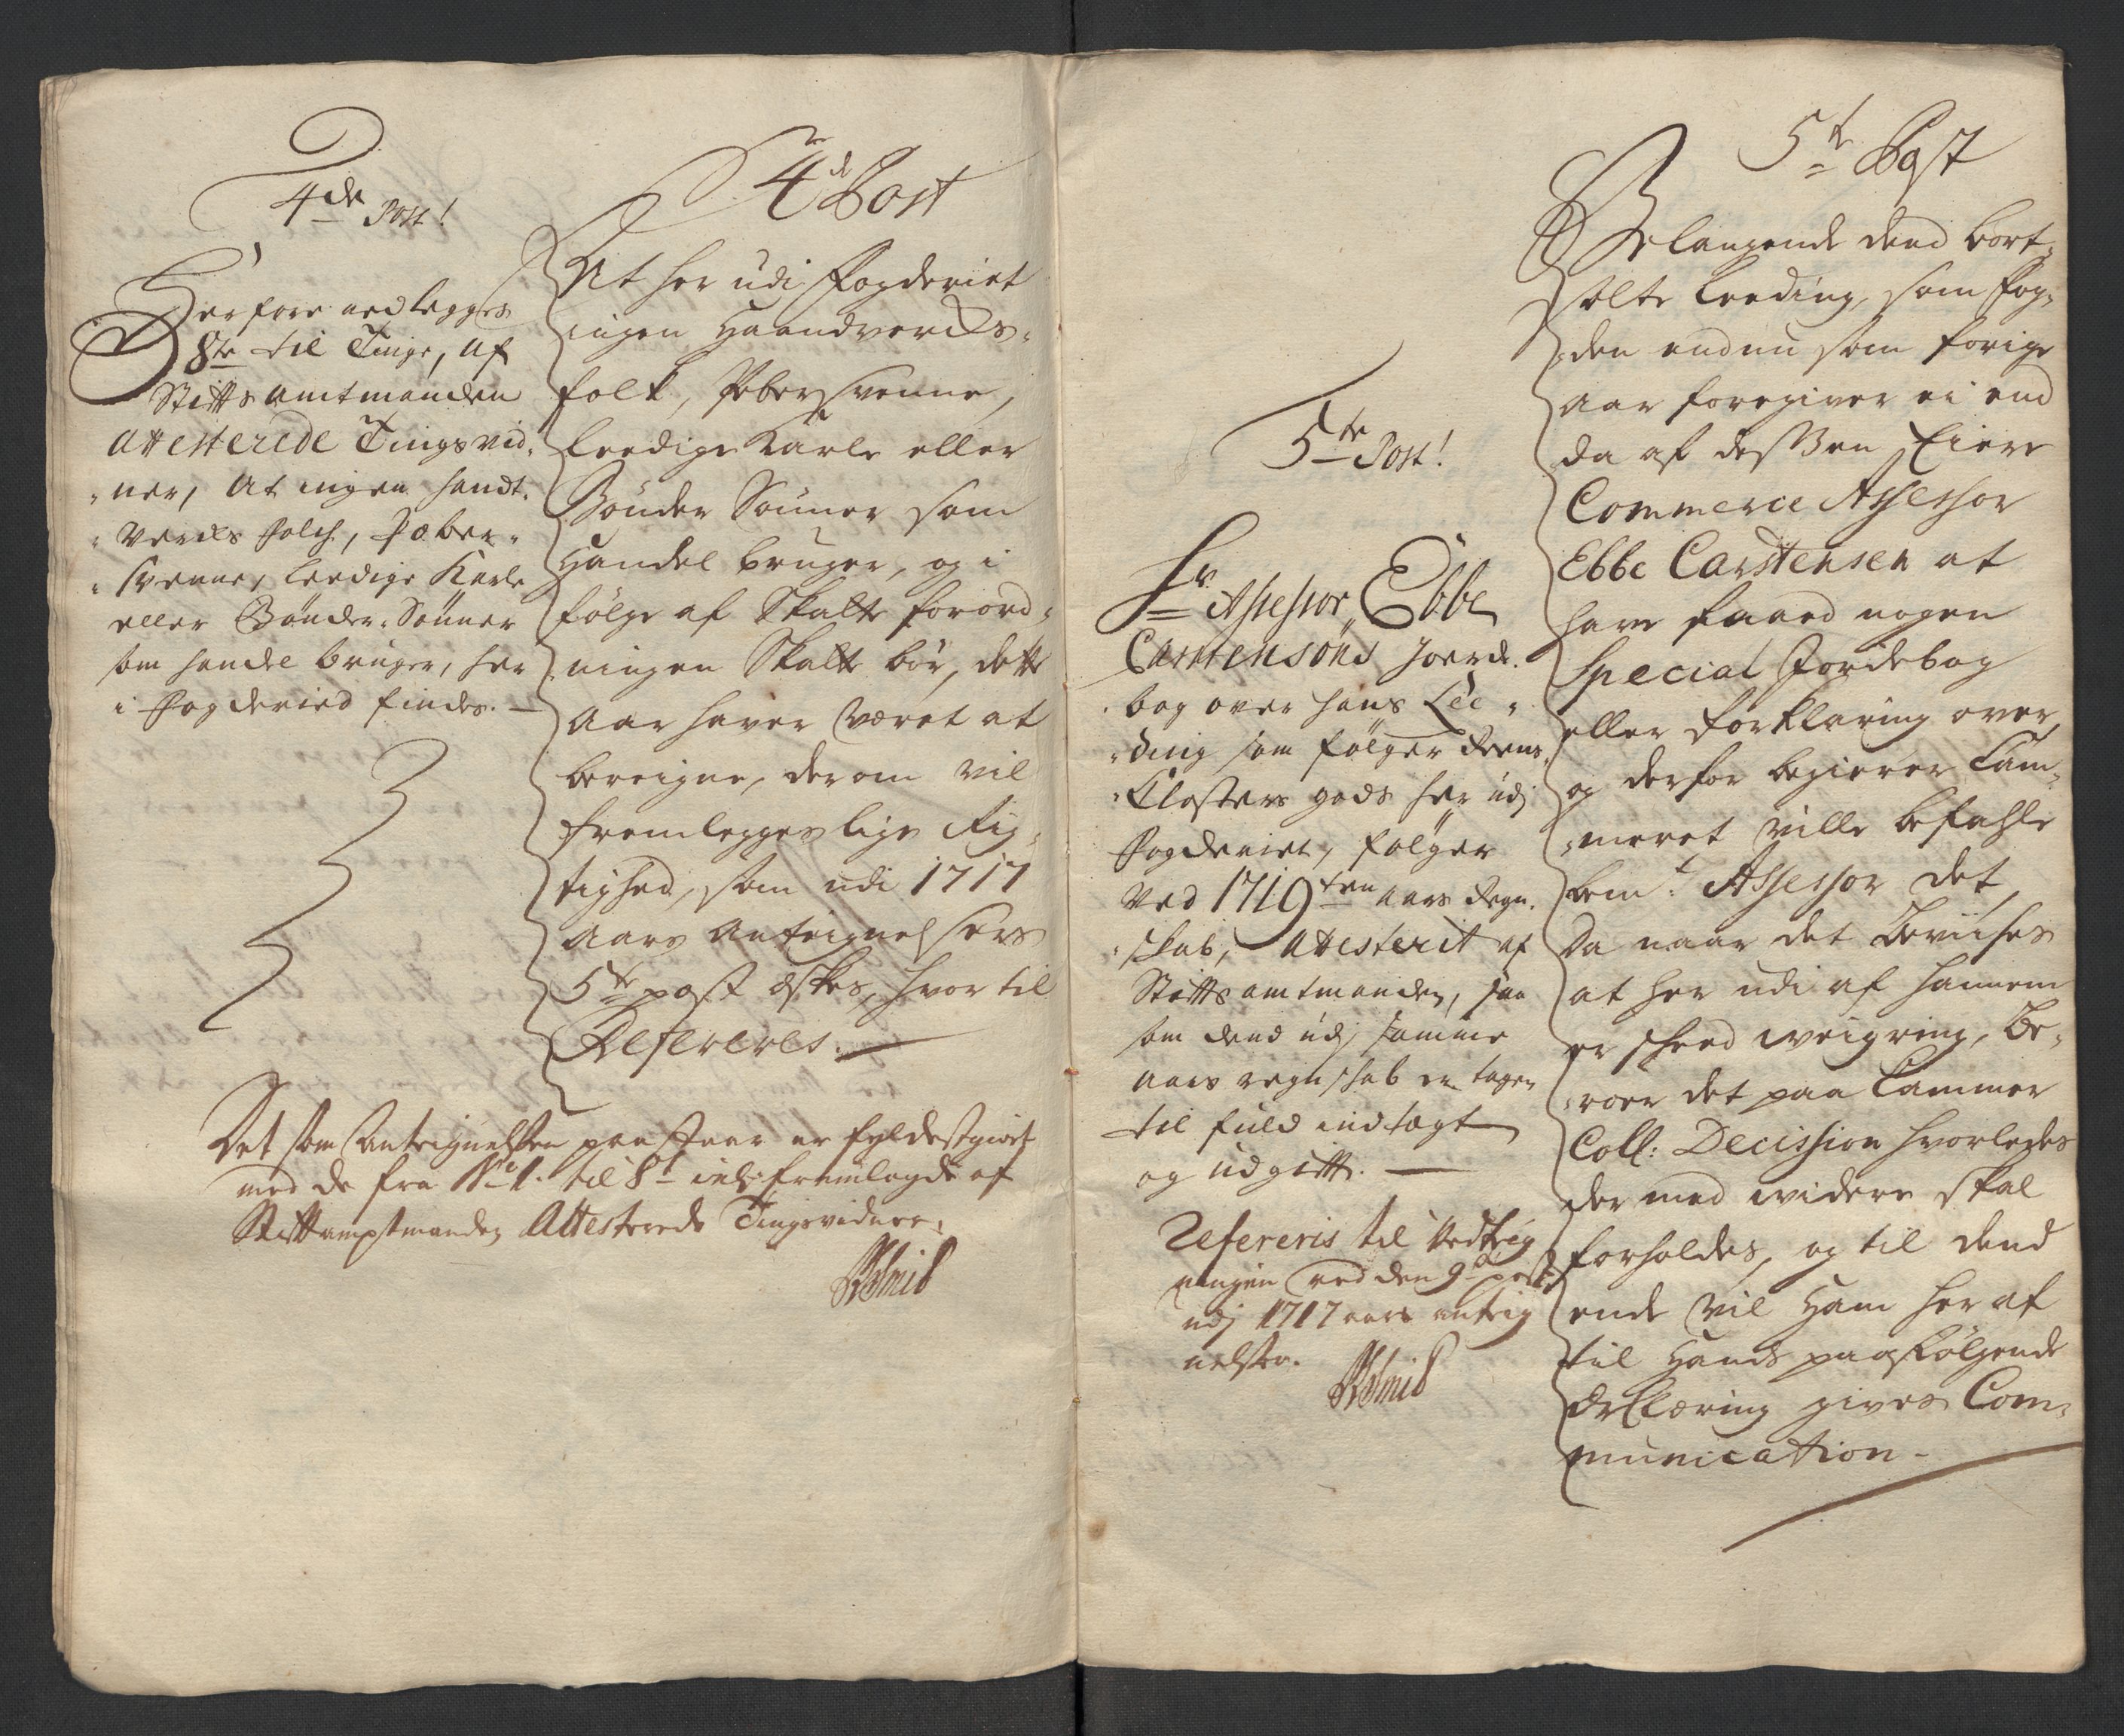 4de Post!
Herfore nedlegges
8te til Tinge, af
Stiftsamtmanden
attesterede Tingsvid-
ner, at ingen handt-
vercks folch, Pæber-
svenne, leedige Karle
eller Bønder-Sønner
som handel bruger, her
i fogderied findes. —
4de Post
At her udi fogderiet
ingen Haandvercks-
folk, Pebersvenne,
leedige Karle eller
Bønder Sønner som
Handel bruger, og i
følge af Skatte forord-
ningen Skatte bør, dette
aar haver været at
bereigne, derom vil
fremlegges lige Rig-
tighed, som udi 1717
aars Anteignelsers
5te post æskes, hvortil
Refereres. —
Det som Anteignelsen paastaar er fyldestgiort
med de fra No 1. til 8t incl: fremlagde af
Stiftamptmanden Attesterede Tingsvidner.
5te Post!
Hr Assessor Ebbe
Carstensøns Joerde-
bog over hans Lee-
ding som følger Reens-
Closters gods her udj
fogderiet, følger
ved 1719ten aars Regn-
skab, attesterit af
Stiftsamtmanden, saa
som dend udj samme
aars regnskab er tagen
til fuld indtægt
og udgift. —
Refereris til
ved den 9de post
udj 1717 aars anteig
nelser.
5te Post
Belangende dend bort-
solte Leeding, som fog-
den endnu som forige
aar foregiver ei end
da af dessen Eiere
Commerce Assessor
Ebbe Carstensen at
have faaed nogen
Special Jordebog
eller forklaring over,
og derfor begierer Cam-
meret ville befahle
bemte Assessor det,
Da naar det beviises
at her udi af hannem
er skeed weigring, be-
roer det paa Cammer
Coll: Decission hvorledes
der med widere skal
forholdes, og til dend
ende vil Ham her af
til Hands paafølgende
Erklæring gives Com-
munication —